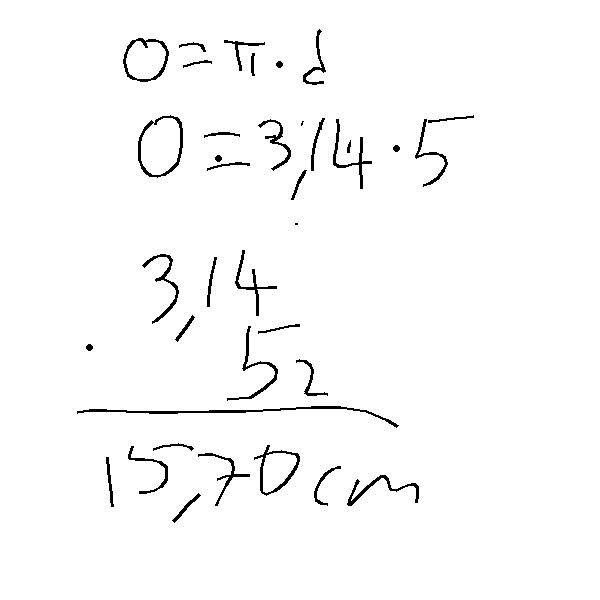 O = π · d
O ≐ 3,14 · 5
3,14
· 52
15,70 cm